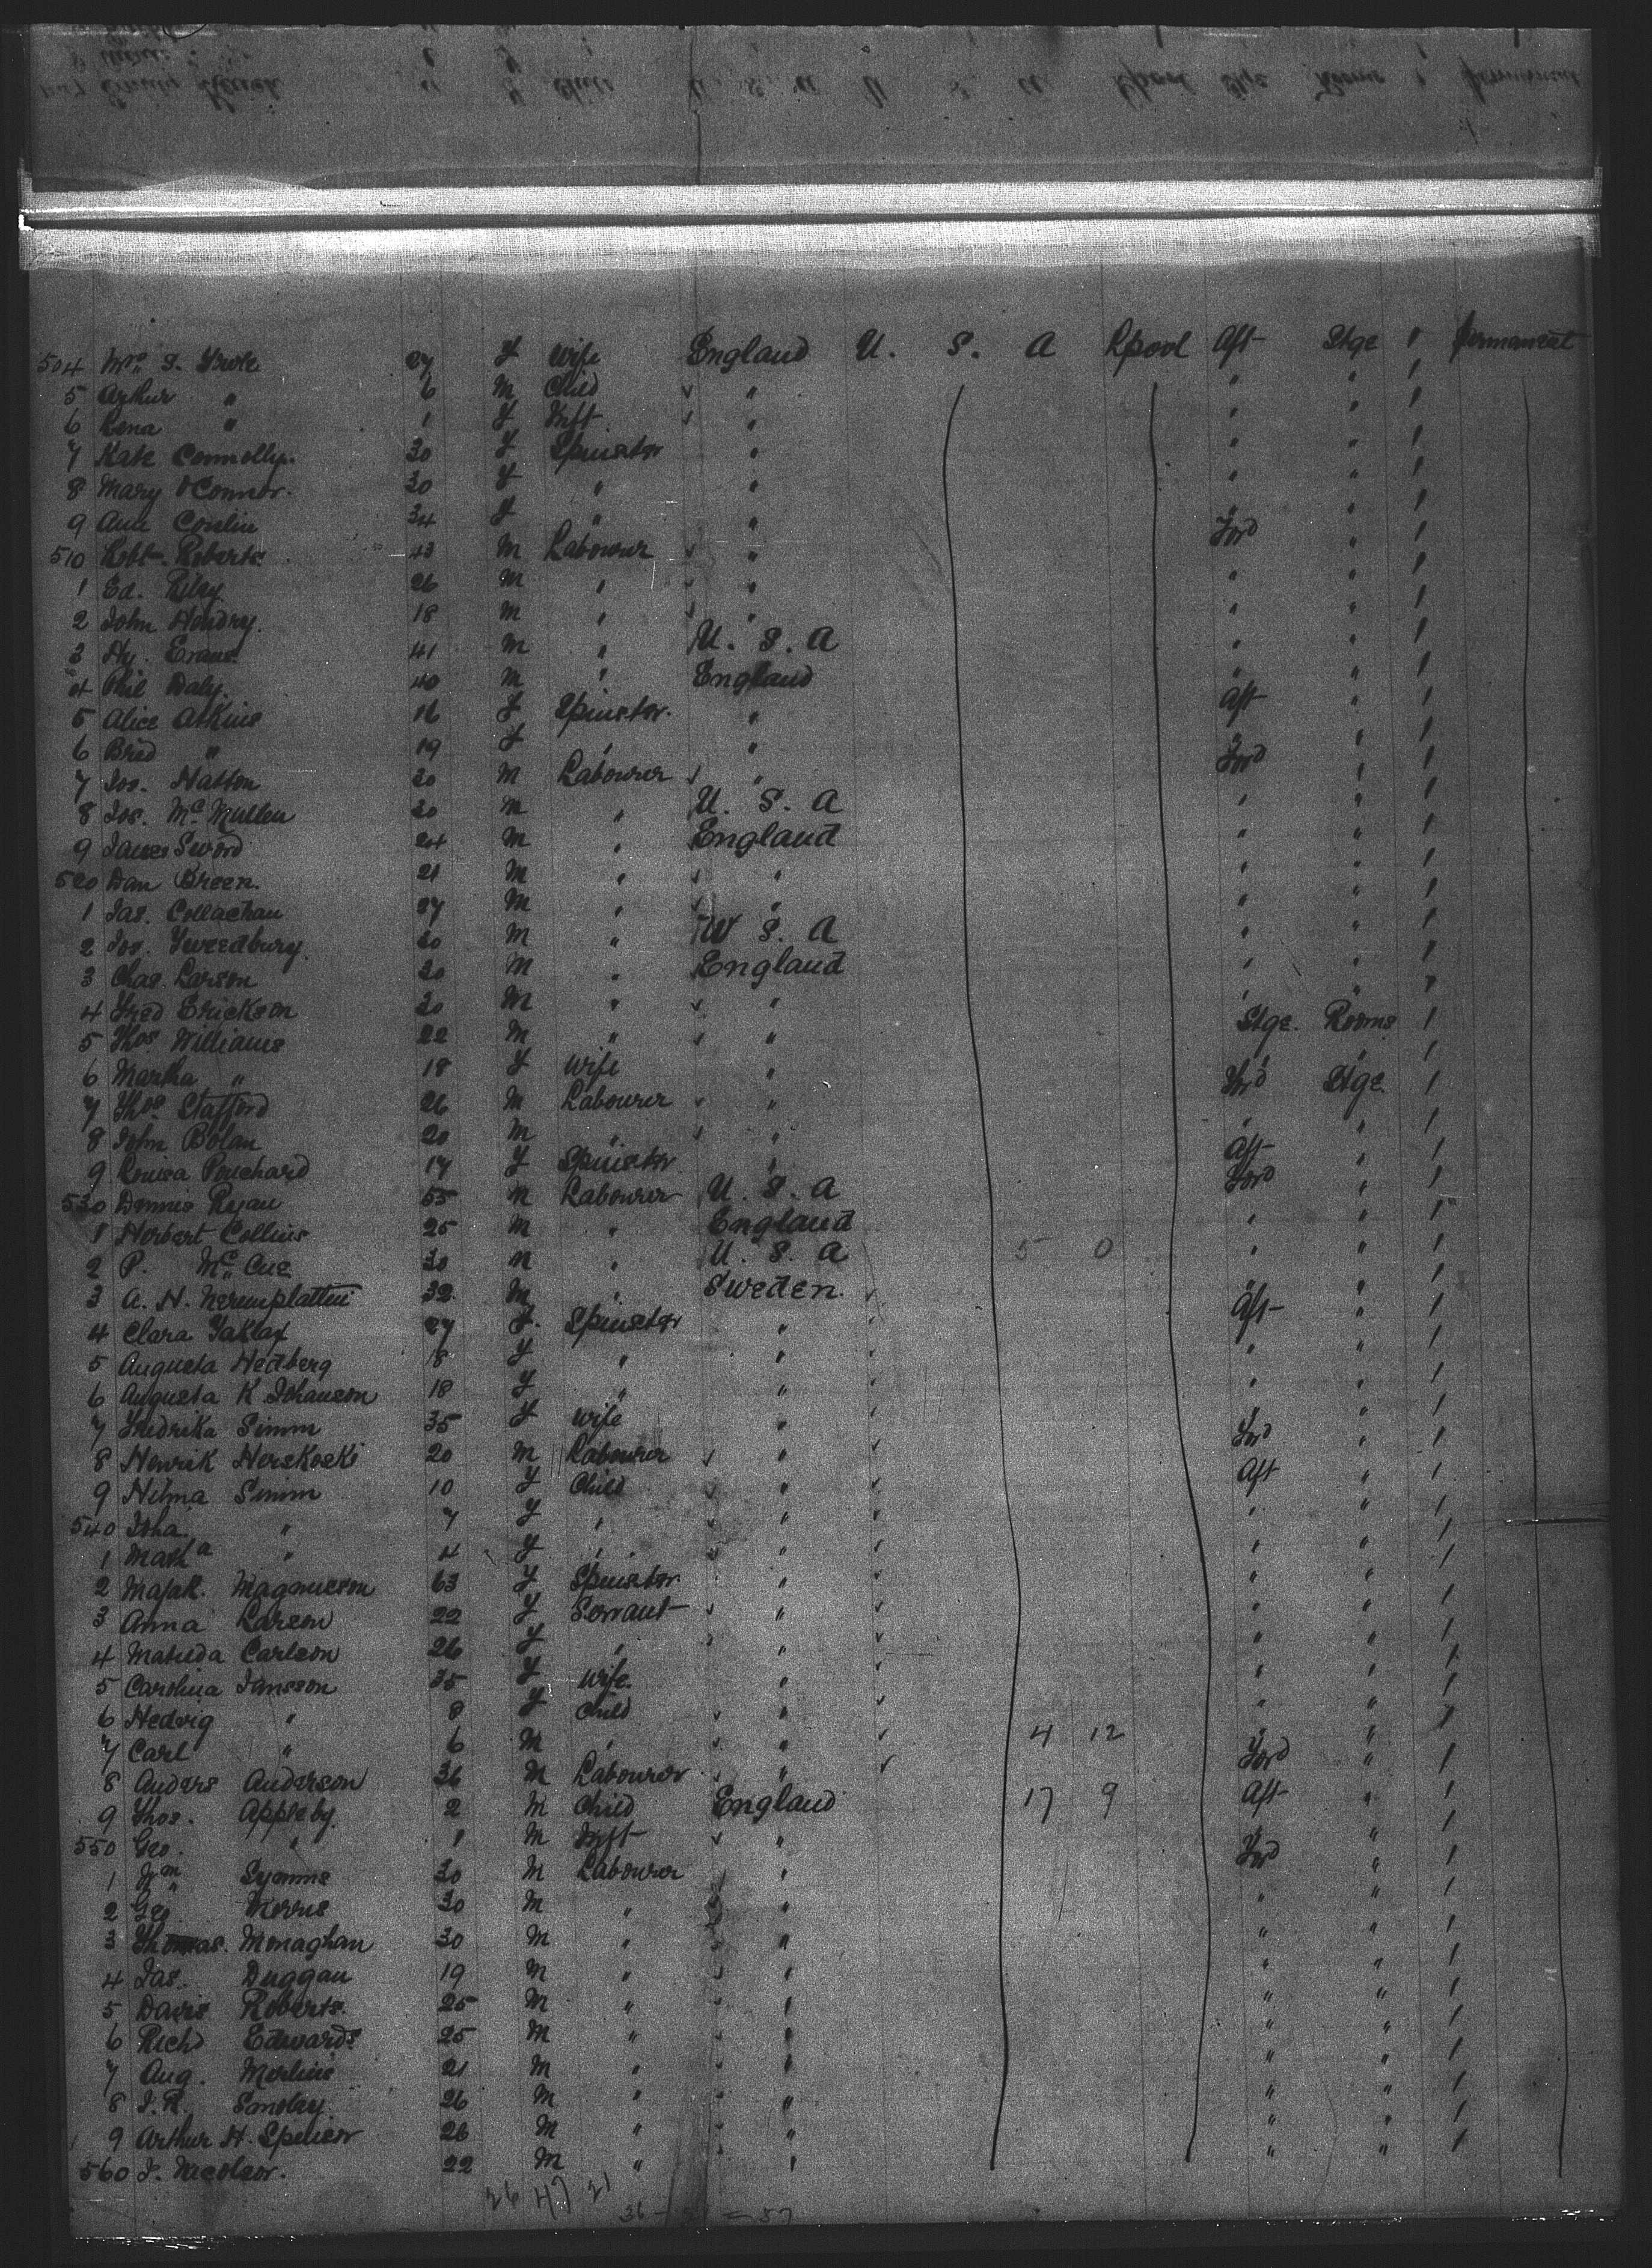 504 Mrs S. 27 F Wife England U. S. A Lpool Aft Stge 1 Permanent
5 Arthur " 6 M Child " " " 1
6 Lena " 1 F Inft " " " 1
7 Kate Connolly. 30 F Spinster " " " 1
8 Mary O'Connor. 30 F " " " " 1
9 Ann Conlin 34 F " " " " 1
510 Robt Roberts 43 M Labourer " Ford " 1
1 Ed. Riley 26 M " " " " 1
2 John Hendry. 18 M " " " " 1
3 Hy. Evans 41 M " U. S. A " " 1
4 Phil Daly. 40 M " England " " 1
5 Alice Atkins 16 F Spinster. " Aft " 1
6 Brid " 19 F " " " " 1
7 Jos. Hatton 30 M Labourer " Ford " 1
8 Jos. Mc Mullen 30 M " U. S. A " " 1
9 James Sword 24 M " England " " 1
520 Dan Breen. 21 M " " " " 1
1 Jas. Collachan 27 M " " " " 1
2 Jos. Tweedbury. 30 M " U S. A " " 1
3 Chas. Larson 30 M " England " " 1
4 Fred Erickson 30 M " " " " 1
5 Thos. Williams 22 M " " Stge. Rooms 1
6 Martha " 18 F Wife " " " 1
7 Thos Stafford 26 M Labourer " Ford Stge 1
8 John Bolan 20 M " " " " 1
9 Louisa Pouchard 17 F Spinster " Aft " 1
530 Dennis Ryan 55 M Labourer U. S. A Ford " 1
1 Herbert Collins 25 M " England " " 1
2 P. Mc Cue 30 M " U. S. A 5 0 " " 1
3 A. H. 32 M " Sweden. " " 1
4 Clara 27 F. Spinster " Aft " 1
5 Augusta Hedberg 18 F " " " " 1
6 Augusta K Johanson 18 F " " " " 1
7 Fredrika Simm 35 F Wife " " " 1
8 Henrik Herskoski 20 M Labourer " Ford " 1
9 Hilma Simm 10 F Child " Aft " 1
540 Joha " 7 F " " " " 1
1 Martha " 4 F " " " " 1
2 MajaK. Magnuson 63 F Spinster " " " 1
3 Anna Larson 22 F Servant " " " 1
4 Matilda Carlson 26 F " " " " 1
5 Carolina Jansson 35 F Wife. " " " 1
6 Hedvig " 8 F Child " " " 1
7 Carl " 6 M " " 4 12 " " 1
8 Anders Anderson 36 M Labourer " Ford " 1
9 Thos. Appleby. 2 M Child England 17 9 Aft " 1
550 Geo. " 1 M Inft " " " 1
1 Wm Symms 30 M Labourer " Ford " 1
2 Geo. Norris 30 M " " " " 1
3 Thomas. Monaghan 30 M " " " " 1
4 Jas. Duggan 19 M " " " " 1
5 Davis Roberts. 25 M " " " " 1
6 Richd Edwards 25 M " " " " 1
7 Aug. 21 M " " " " 1
8 J. R. Smoley 26 M " " " " 1
9 Arthur H. Spencer 26 M " " " " 1
560 J. 22 M " " " " 1
26 47 21